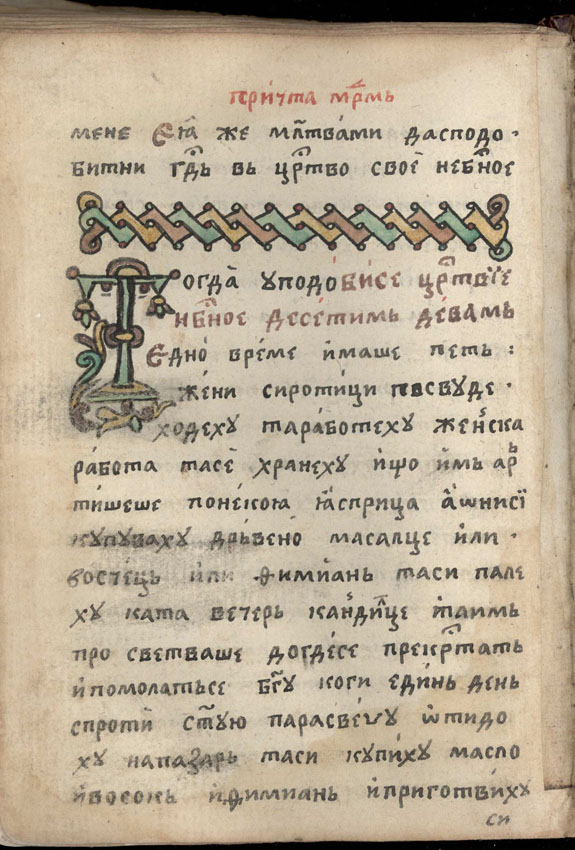 при́чта мр҃мь
мене Єѧ҃ же мл҃тва́ми дасподо·
битни гд҃ь вь цр҃тво своѐ неб҃ное
Тогда̀ уподо́бисе цр҃твїе
нб҃ное десе́тимь де́вамь
Єдно̀ вре́ме и́маше петь :
же́ни сироти́ци псвуде·
ходеху тарабо́теху же́нска
ра́бота тасѐ хра́неху ищо и́мь ар
тишеше поне́кою а҆̀сприца а҆ѡнисї
купуваху дрь́вено̀ масалце и҆ли·
восте́ць и҆ли ѳимїань таси пале
ху ката вечерь канди҃це и҆таимь
про светваше догде́се прекр҃тать
и҆помолатьсе бг҃у коги еди́нь день
спроти̑ ст҃ую парасве́ѵу ѿтидо
ху напаза́рь таси купи́ху масло
и҆восокь и҆ѳимиань и҆приготви́ху
си